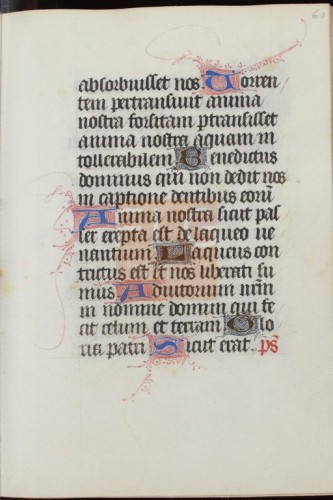 absorbuisset nos Torren
tem pertransiuit anima
nostra forsitam ptransisset
anima nostra aquam in
tollerabilem Benedictus
dominus qui non dedit nos
in captione dentibus eorū
Anima nostra sicut pas
ser erepta est de laqueo ue
nantium Laqueus con
tritus est et nos liberati su
mus Adiutorium nr̄m
in nomine domini qui fe
cit celum et terram Glo
ria patri Sicut erat. ps̄